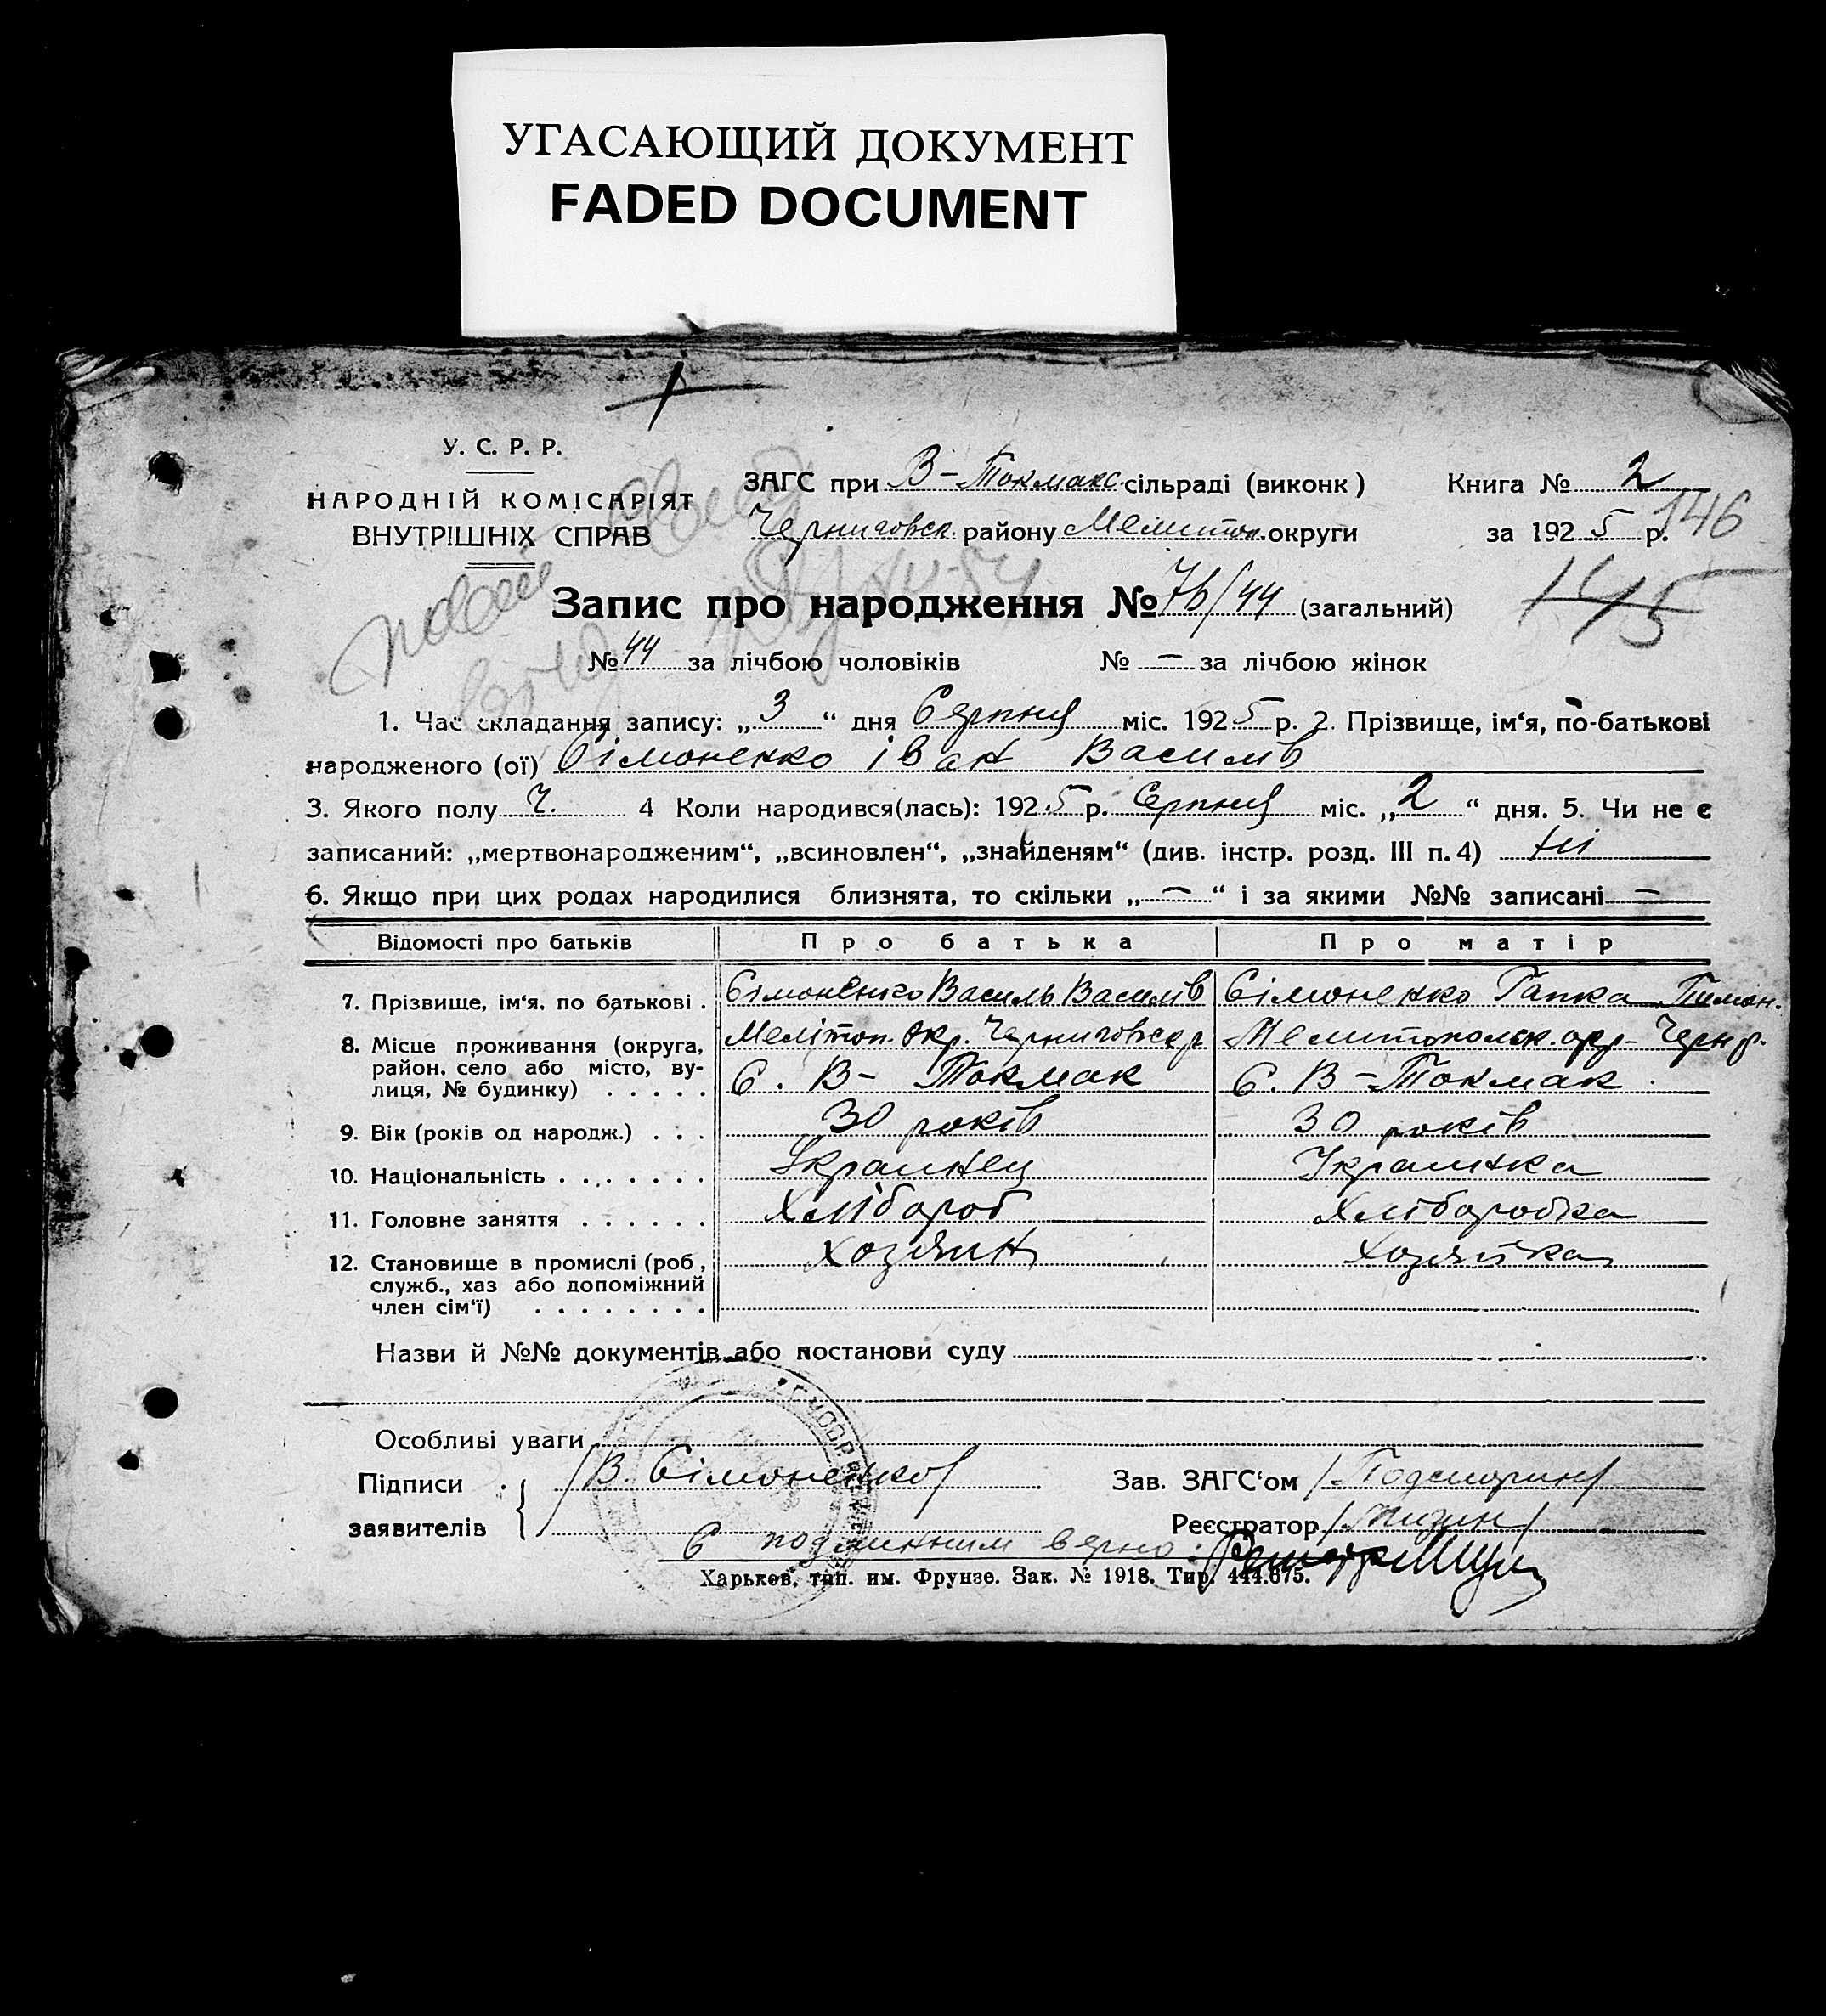 УГАСАЮЩИЙ ДОКУМЕНТ
FADED DOCUMENT
У. С. Р. Р.
НАРОДНІЙ КОМІСАРІЯТ
ВНУТРІШНІХ СПРАВ
ЗАГС при В-Токмакс. сільраді (виконк) Книга № 2
Черниговск. району Мелитоп. округи за 1925 р. 146
Запис про народження № 76/44 (загальний) 145
№ 44 за лічбою чоловіків № — за лічбою жінок
1. Час складання запису: „3“ дня Серпня міс. 1925 р. 2. Прізвище, ім‘я, по-батькові
народженого (ої) Сімоненко Іван Василів
3. Якого полу Ч. 4 Коли народився(лась): 1925 р. Серпня міс. „2“ дня. 5. Чи не є
записаний: „мертвонародженим“, „всиновлен“, „знайденям“ (див. інстр. розд. III п. 4) ні
6. Якщо при цих родах народилися близнята, то скільки „—“ і за якими №№ записані —
Відомості про батьків Про батька Про матір
7. Прізвище, ім‘я, по батькові . Сімоненко Василь Василів Сімоненко Гапка Тимон.
8. Місце проживання (округа, Мелітоп. окр. Черниговск р Мелитопольск. окр- Черн р.
район, село або місто, ву-
лиця, № будинку) . . . . . С. В- Токмак С. В-Токмак.
9. Вік (років од народж.) . . . 30 років 30 років
10. Національність . . . . . . . Украинец Украинка
11. Головне заняття . . . . . . Хлібороб Хлiборобка
12. Становище в промислі (роб., Хозяин Хозяйка
служб., хаз або допоміжний
член сім‘ї) . . . . . . . .
Назви й №№ документів або постанови суду
Особливі уваги
Підписи В. Сімоненко Зав. ЗАГС‘ом
заявителів Реєстратор
С подлинним верно:
Харьков, тип. им. Фрунзе. Зак. № 1918. Тир. 444.675.